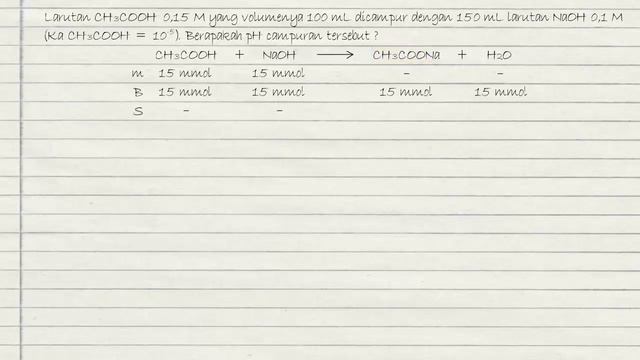 Larutan CH₃COOH 0,15 M yang volumenya 100 mL dicampur dengan 150 mL larutan NaOH 0,1 M
(Ka CH₃COOH = 10⁻⁵). Berapakah pH campuran tersebut ?
CH₃COOH + NaOH → CH₃COONa + H₂O
m 15 mmol 15 mmol - -
B 15 mmol 15 mmol 15 mmol 15 mmol
S - -